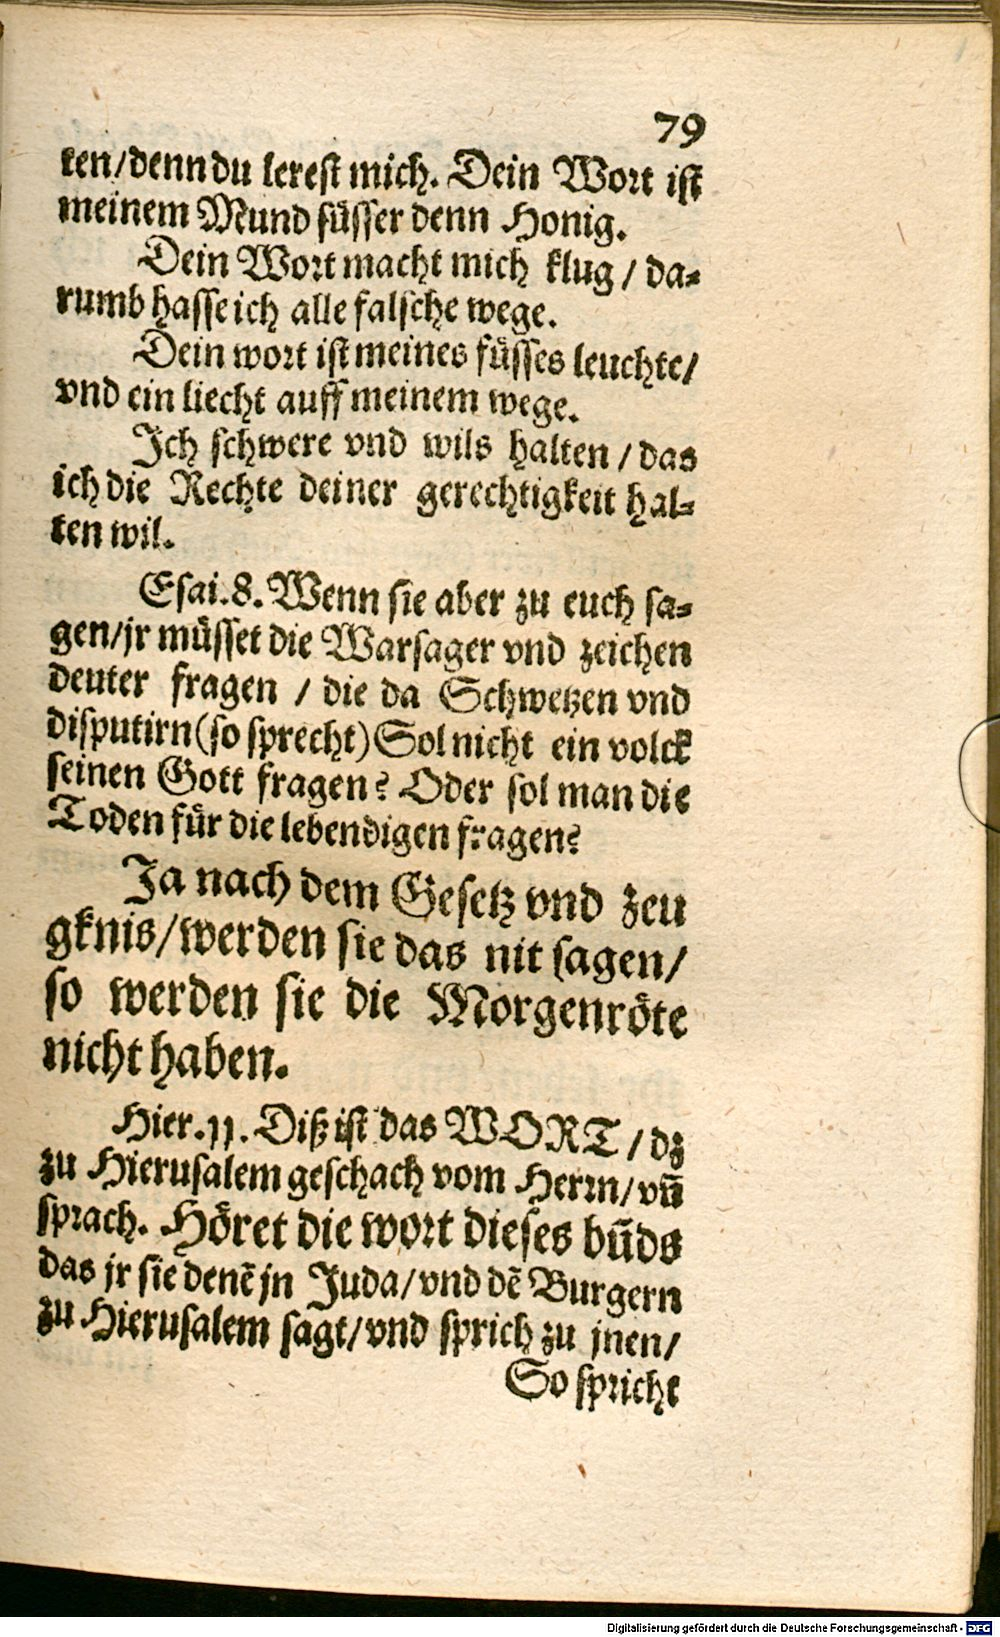 79
ten/denn du lerest mich. Dein Wort ist
meinem Mund süsser denn Honig.
Dein Wort macht mich klug / da-
rumb hasse ich alle falsche wege.
Dein wort ist meines füsses leuchte/
vnd ein liecht auff meinem wege.
Ich schwere vnd wils halten / das
ich die Rechte deiner gerechtigkeit hal-
ten wil.
Esai. 8. Wenn sie aber zu euch sa-
gen/jr müsset die Warsager vnd zeichen
deuter fragen / die da Schwetzen vnd
disputirn (so sprecht) Sol nicht ein volck
seinen Gott fragen? Oder sol man die
Toden für die lebendigen fragen?
Ja nach dem Gesetz vnd zeu
gknis/werden sie das nit sagen/
so werden sie die Morgenröte
nicht haben.
Hier. 11. Diß ist das WORT / dz
zu Hierusalem geschach vom Herrn/ vn̄
sprach. Höret die wort dieses būds
das jr sie denē jn Juda/vnd dē Burgern
zu Hierusalem sagt/vnd sprich zu jnen/
So spricht
Digitalisierung gefördert durch die Deutsche Forschungsgemeinschaft - DFG